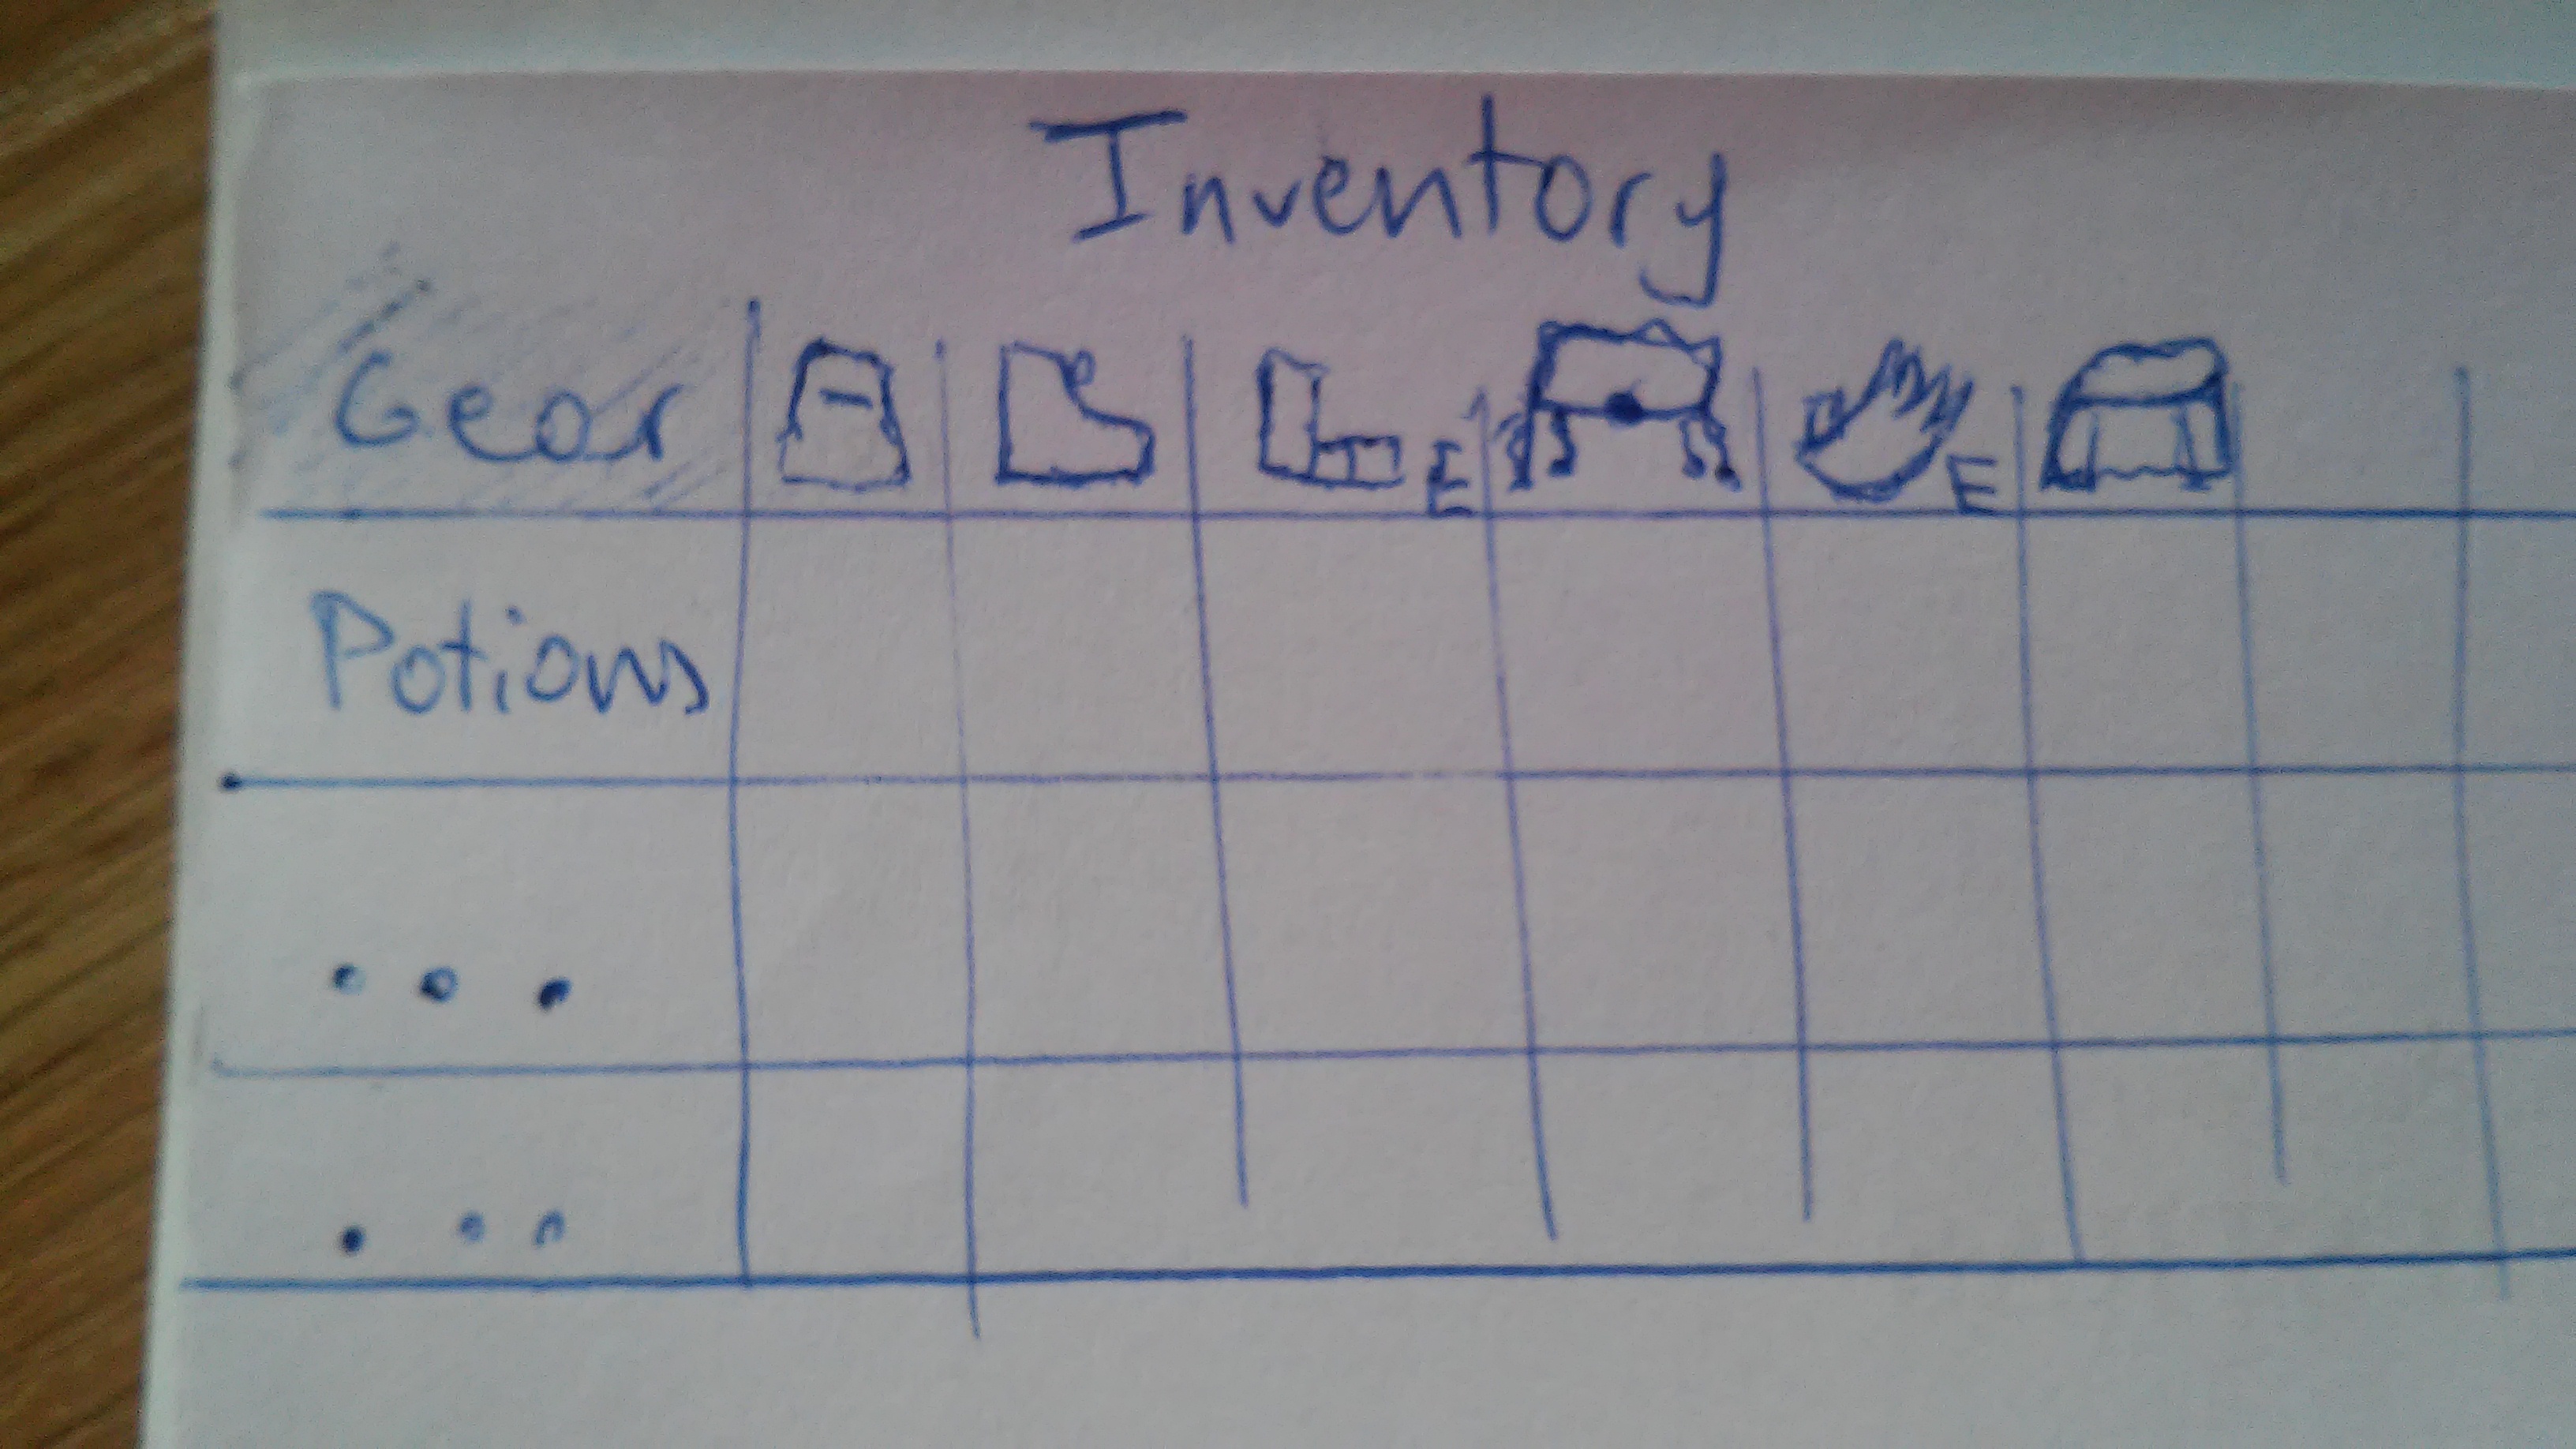 Inventory
Gear E E
Potions
. . .
. . .